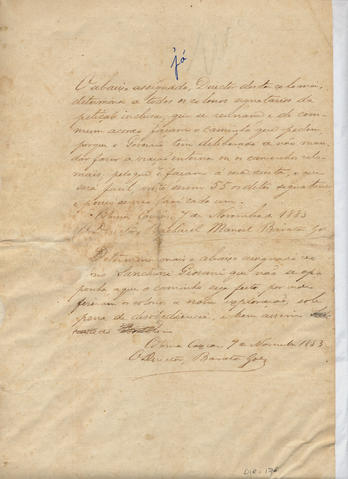 já
O abaixo assignado, Director desta colonia,
determina a todos os colonos signatarios da
petição inclusa, que se reunam e de com
mum acordo façam o caminho que pedem,
porque o Governo tem deliberado a não man
dar fazer a viação interna ou os caminhos
mais, pelo que o façam á sua custa, o que
será facil, visto serem 55 os ditos signatarios
e pouco serviço para cada um.
Colonia Caxias, 7 de Novembro de 1883
O Director, Manoel Barata Góes
Determina mais o abaixo assignado
ao Snr. Giovani que não se op
ponha a que o caminho seja feito por onde
os colonos a nova exploração, sob
pena de desobediencia, e bem assim
Colonia Caxias 7 de Novembro 1883.
O Director, Barata Góes